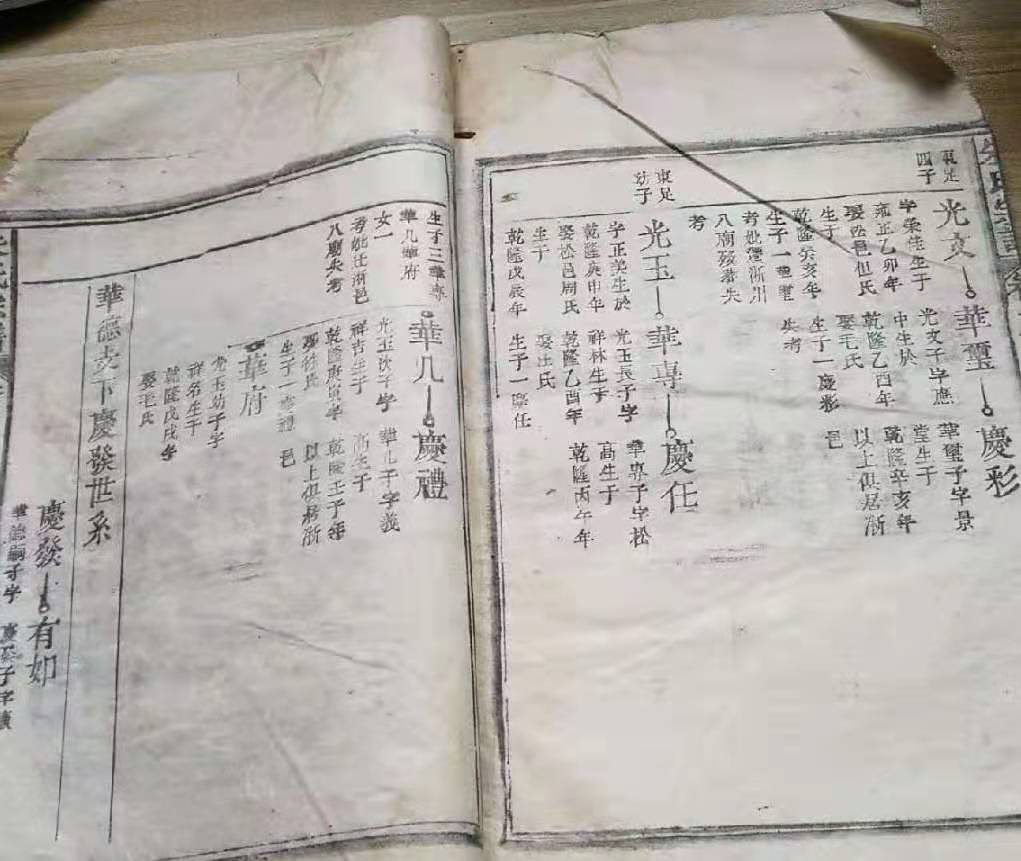 東足
四子
光文
華璽
慶彩
字榮佳生于
雍正乙卯年
娶松邑但氏
生于
乾隆癸亥年
生子一華璽
考妣遷淅川
八廟歿葬失
考
光文子字應
中生於
乾隆乙酉年
娶毛氏
生子一慶彩
失考
華璽子字景
堂生于
乾隆辛亥年
以上俱居淅
邑
東足
幼子
光玉
華專
慶任
字正美生於
乾隆庚申年
娶松邑周氏
生于
乾隆戊辰年
光玉長子字
祥林生于
乾隆乙酉年
娶汪氏
生子一慶任
華專子字松
高生于
乾隆丙午年
生子三華專
華几華府
女一
考妣辻淅邑
八廟失考
華几
慶禮
光玉次子字
祥吉生于
乾隆庚寅年
娶杜氏
生子一慶禮
華几子字義
乾隆壬子年
以上俱居淅
邑
華府
光玉幼子字
祥名生于
乾隆戊戌年
娶毛氏
華德支下慶發世系
慶發
有如